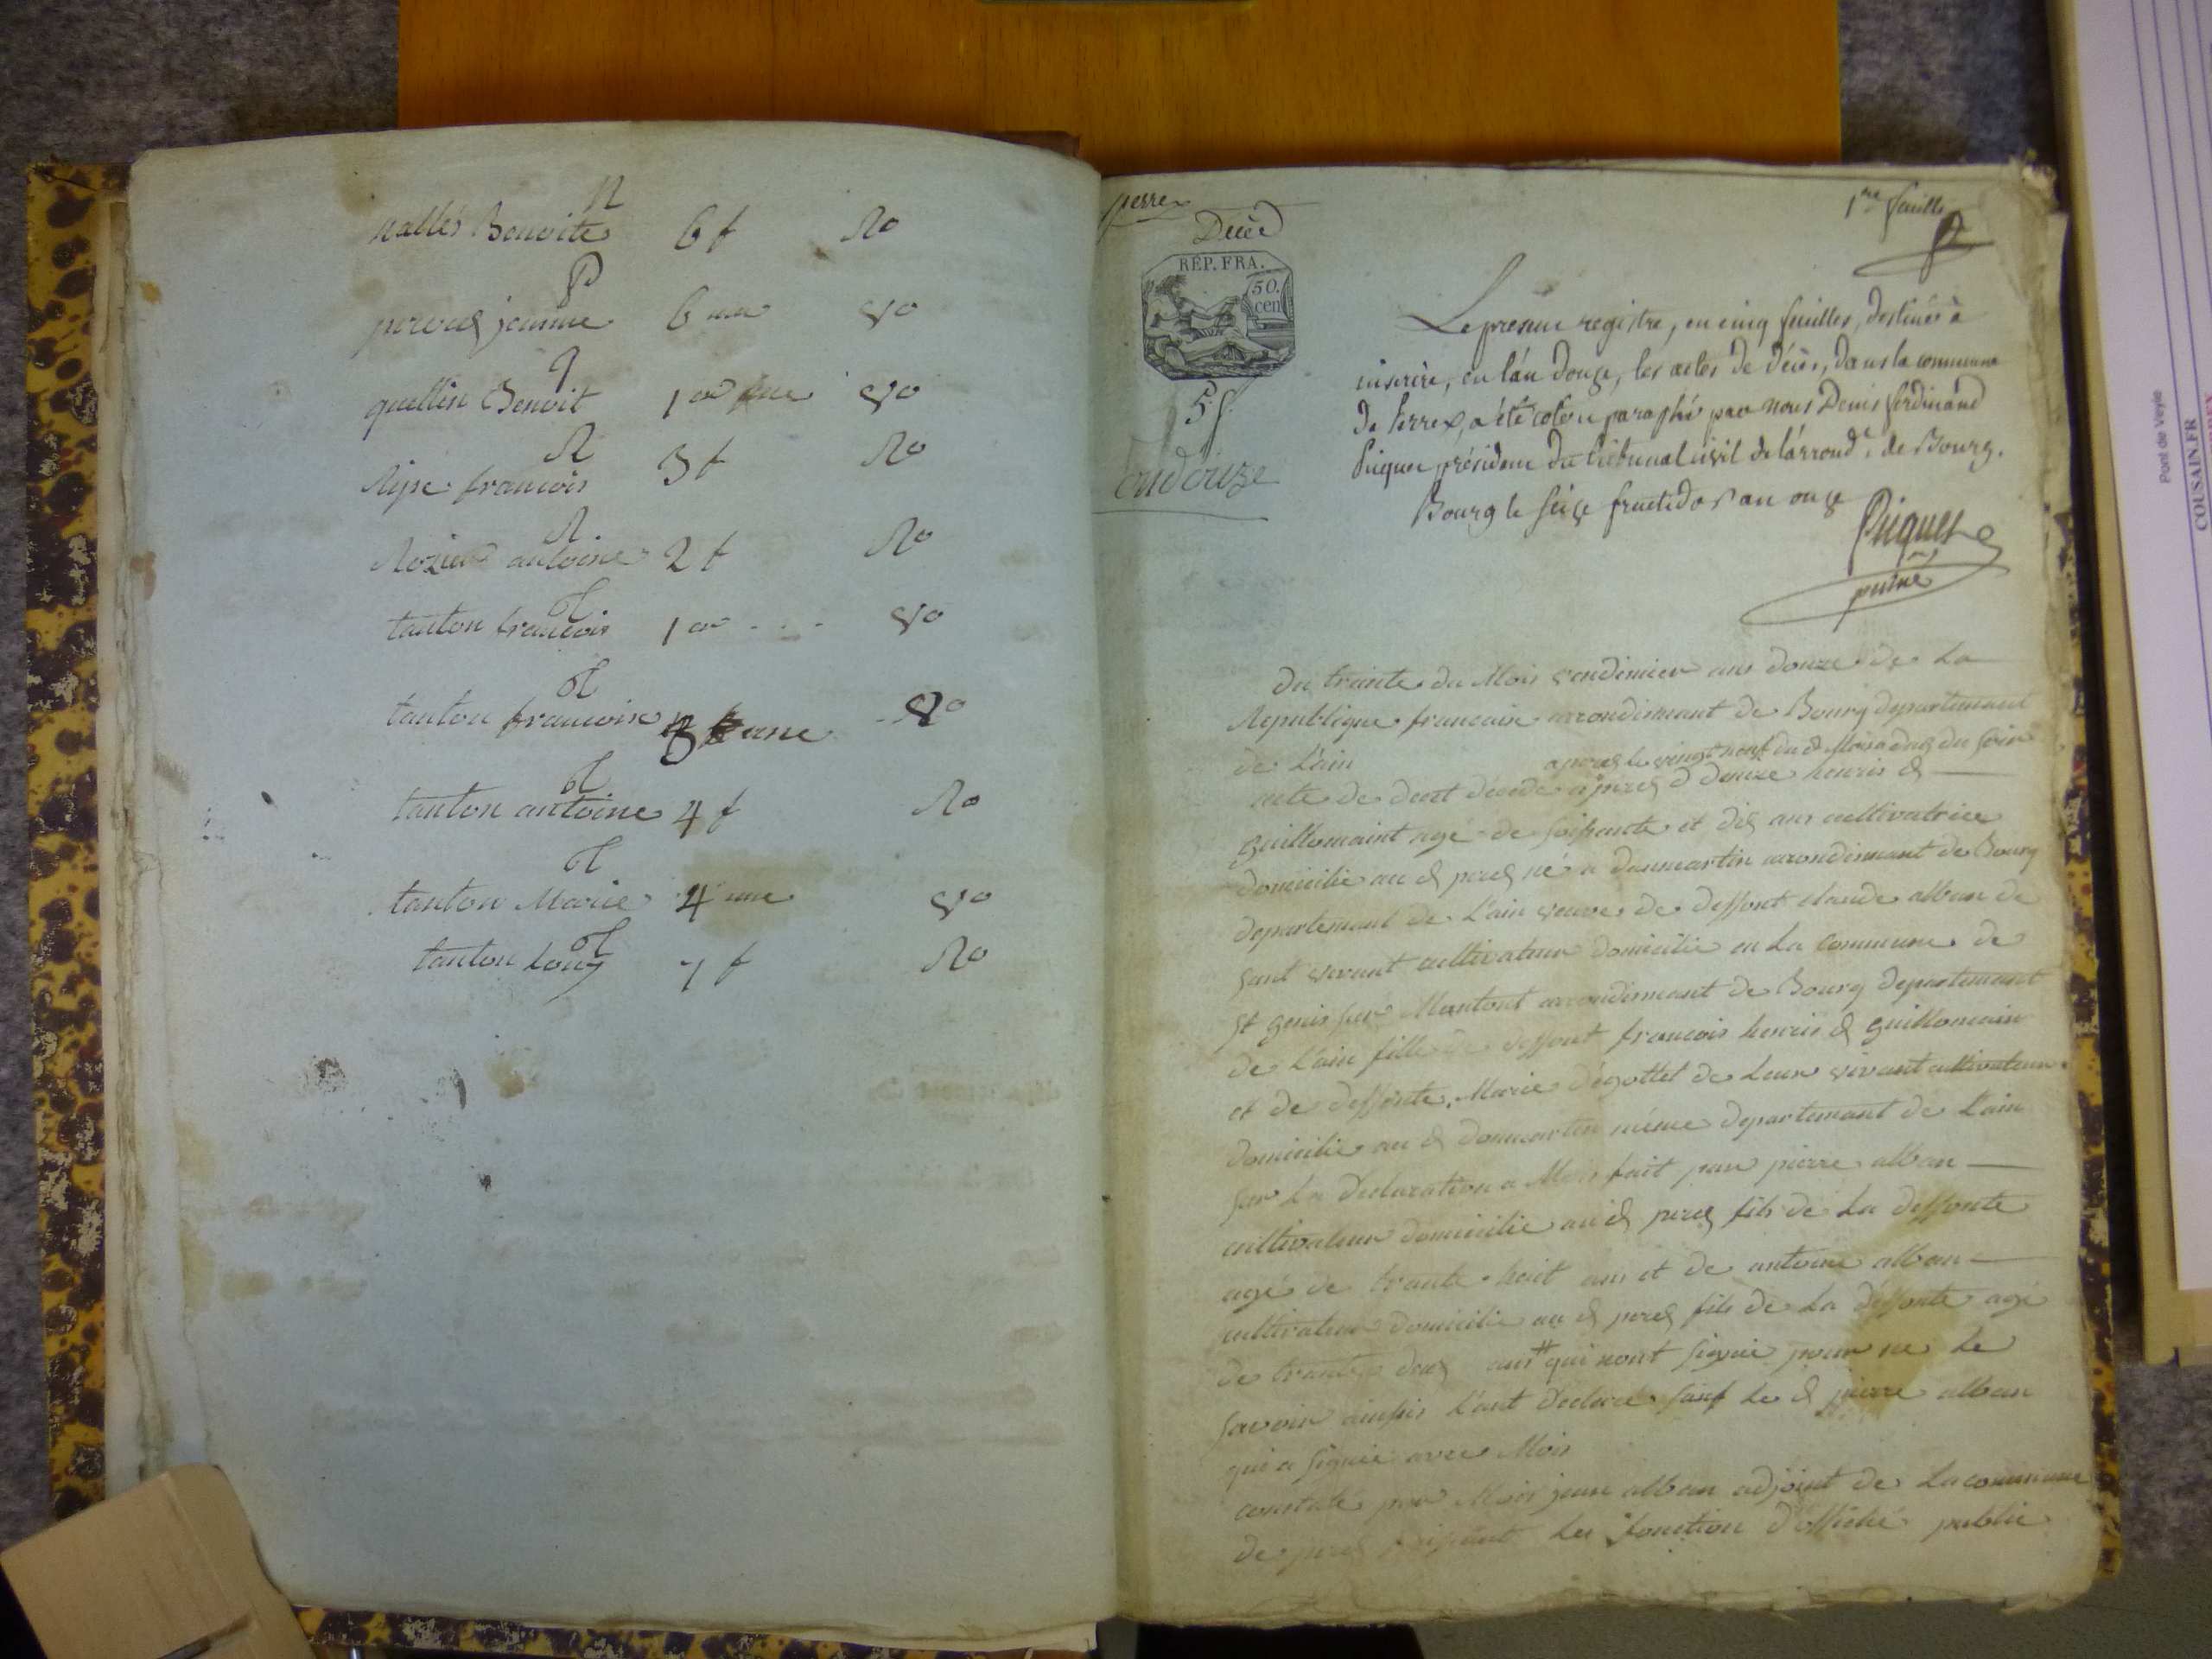 n
nallés Benoite 6 f Ro
p
perrel jeanne 6 me Vo
q
quellin Benoit 1er Vo
R
Ripe francois 3 f Ro
R
Rozier antoine 2 f Ro
t
tanton francois 1er . . . Vo
t
tanton francoise Vo
t
tanton antoine 4 f Ro
t
tanton Marie 4 me Vo
t
tanton Louis 7 f Ro
perrex
Décès
REP. FRA.
50.
cen
5f.
L'an douze
1re feuille
Le présent registre, en cinq feuilles, destinés à
inscrire, en l'an douze, les actes de décès, dans la commune
de Perrex, a été coté et paraphé par nous Denis Ferdinand
Piquet président du tribunal civil de l'arrondt. de Bourg.
Bourg le seize fructidor an onze
Piquet
puiné
Du trante du Mois vendimier ans douze de La
Republique francaise arrondismant de Bourg departemant
de L'ain
apres le vingt neuf du d Mois a du soir
acte de decet décédé
guillomaint agé de soisente et dis ans cultivatrice
domicilie au d perex né a donmartin arrondismant de Bourg
departemant de L'ain veuve de deffont claude alban de
sont vivant cultivateur domicilie en La commune de
st genis sur Mantont arrondismant de Bourg departemant
de L'ain fille de deffont francois henris d guillomain
et de deffonte Marie dégottet de Leur vivant cultivateur
domicilie au d donmartin méme departemant de L'ain
sur La declaration a Mois fait par pierre alban
cultivateur domicilie au d perex fils de La deffonte
agé de trante huit ans et de antoine alban
cultivateur domicilie au d perex fils de La deffonte agé
de trante ans # qui nont signie pour ne Le
savoir ainssis L'ont declaré sauf Le d pierre alban
qui a signie avec Mois
constaté par Mois jean alban adjoint de La commune
de perex Les fonction d'officié public
Pont de Veyle
COUSAIN.FR